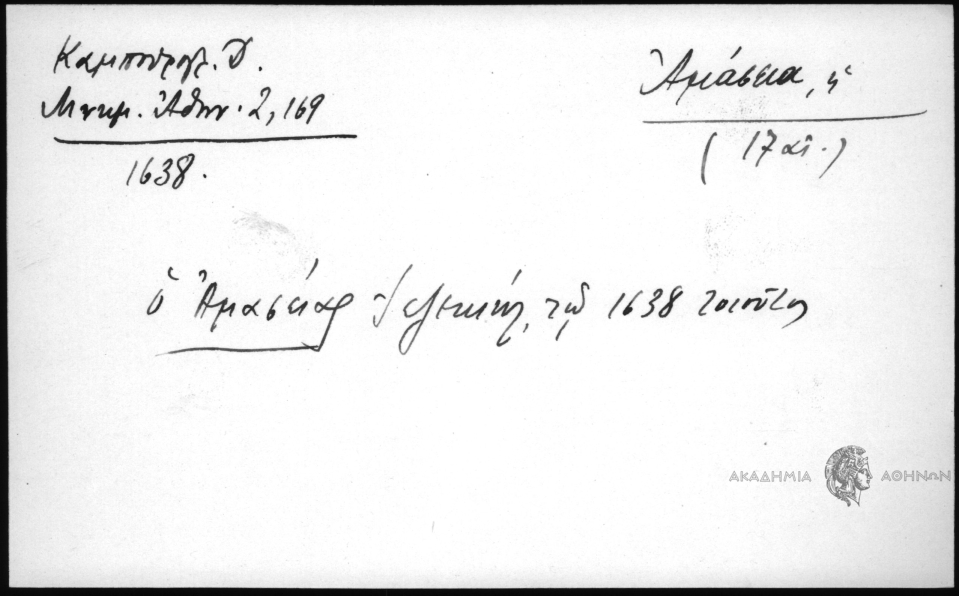 Καμπούρογλ. Δ.
Μνημ. Ἀθην. 2, 169
1638.
Ἀμάσεια, ἡ
(17 αἰ.)
ὁ Ἀμασείας Ἰεζεκιήλ, τῷ 1638 τοιοῦτος
ΑΚΑΔΗΜΙΑ ΑΘΗΝΩΝ